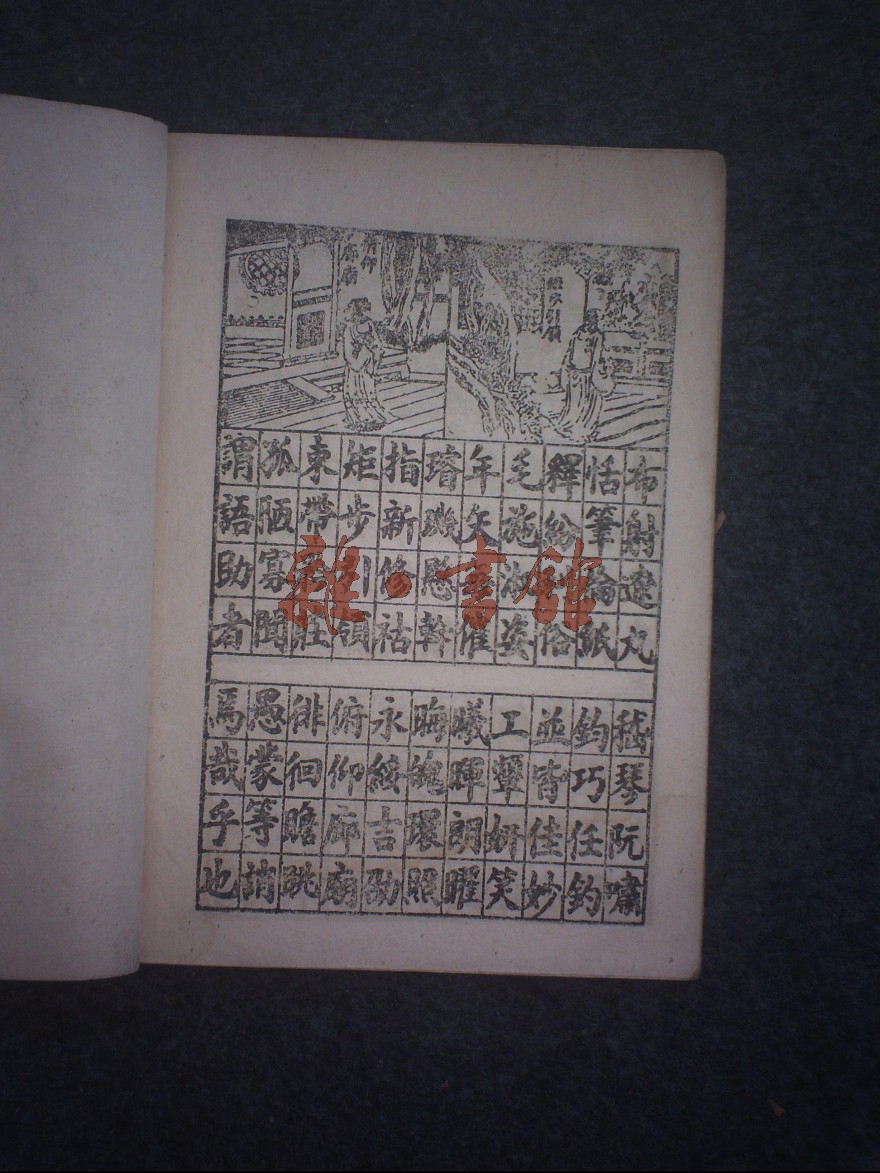 矩步引領
俯仰廊廟
布射遼丸
嵇琴阮嘯
恬筆倫紙
鈞巧任釣
釋紛俗
並皆佳妙
毛施淑姿
工顰妍笑
年矢催
曦暉朗曜
璿璣懸斡
晦魄環照
指薪修祜
永綏吉劭
矩步引領
俯仰廊廟
束帶莊
徘徊瞻眺
孤陋寡聞
愚蒙等誚
謂語助者
焉哉乎也
雜·書館